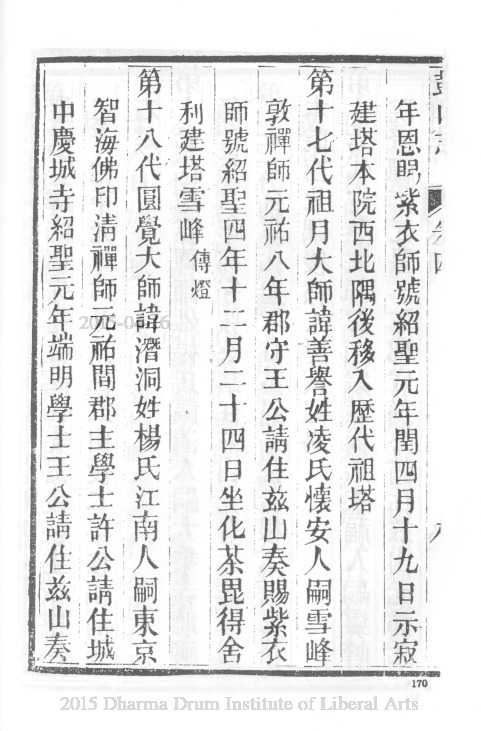 年恩賜紫衣師號紹聖元年閏四月十九日示寂
建塔本院西北隅後移入歷代祖塔
第十七代祖月大師諱善譽姓凌氏懷安人嗣雪峰
敦禪師元祐八年郡守王公請住兹山奏賜紫衣
師號紹聖四年十二月二十四日坐化茶毘得舍
利建塔雪峰傳燈
第十八代圓覺大師諱潛洞姓楊氏江南人嗣東京
智海佛印清禪師元祐間郡主學士許公請住城
中慶城寺紹聖元年端明學士王公請住兹山奏
170
2015 Dharma Drum Institute of Liberal Arts